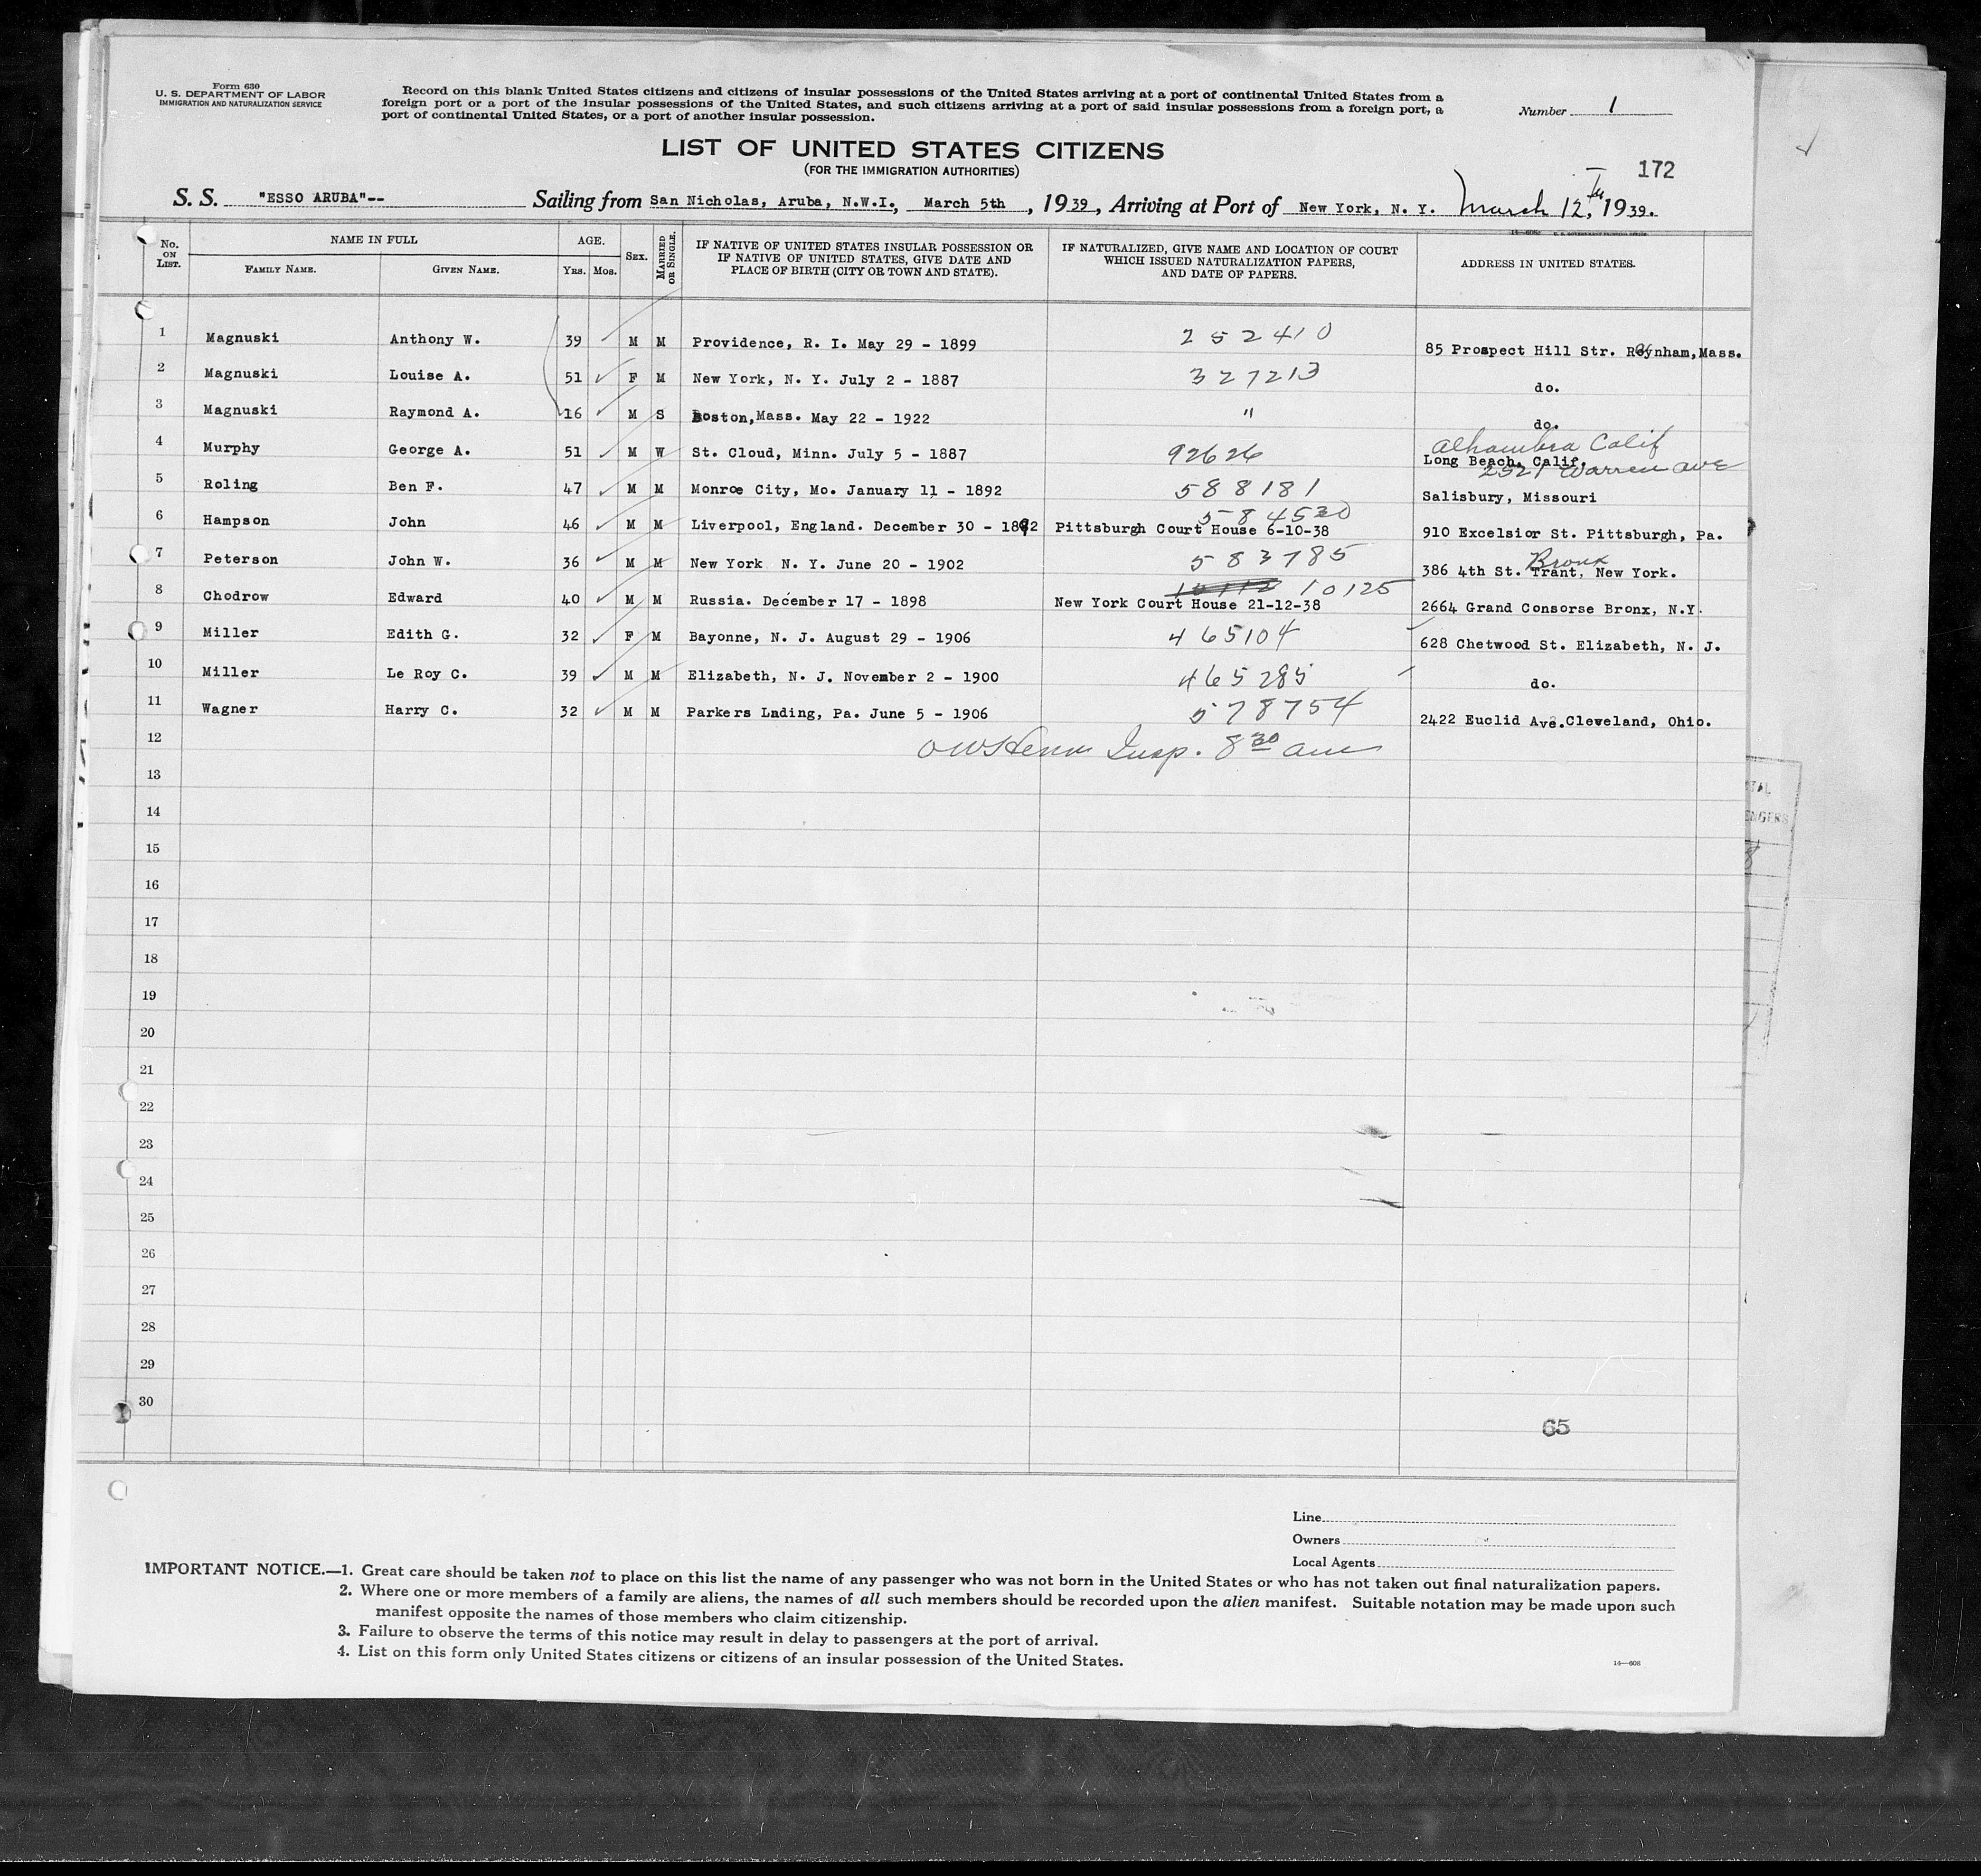 Form 630
U. S. DEPARTMENT OF LABOR
IMMIGRATION AND NATURALIZATION SERVICE
Record on this blank United States citizens and citizens of insular possessions of the United States arriving at a port of continental United States from a
foreign port or a port of the insular possessions of the United States, and such citizens arriving at a port of said insular possessions from a foreign port, a
port of continental United States, or a port of another insular possession.
Number 1
LIST OF UNITED STATES CITIZENS
(FOR THE IMMIGRATION AUTHORITIES)
172
S. S. "ESSO ARUBA"-- Sailing from San Nicholas, Aruba, N.W.I., March 5th, 1939, Arriving at Port of New York, N. Y. March 12, 1939.
No. ON LIST. NAME IN FULL AGE. SEX. MARRIED OR SINGLE. IF NATIVE OF UNITED STATES INSULAR POSSESSION OR IF NATIVE OF UNITED STATES, GIVE DATE AND PLACE OF BIRTH (CITY OR TOWN AND STATE). IF NATURALIZED, GIVE NAME AND LOCATION OF COURT WHICH ISSUED NATURALIZATION PAPERS, AND DATE OF PAPERS. ADDRESS IN UNITED STATES.
FAMILY NAME. GIVEN NAME. YRS. MOS.
1 Magnuski Anthony W. 39 M M Providence, R. I. May 29 - 1899 252410 85 Prospect Hill Str. Raynham, Mass.
2 Magnuski Louise A. 51 F M New York, N. Y. July 2 - 1887 327213 do.
3 Magnuski Raymond A. 16 M S Boston, Mass. May 22 - 1922 " do.
Alhambra Calif
4 Murphy George A. 51 M W St. Cloud, Minn. July 5 - 1887 92626 Long Beach, Calif.
2521 Warren Ave
5 Roling Ben F. 47 M M Monroe City, Mo. January 11 - 1892 588181 Salisbury, Missouri
584530
6 Hampson John 46 M M Liverpool, England. December 30 - 1892 Pittsburgh Court House 6-10-38 910 Excelsior St. Pittsburgh, Pa.
Bronx
7 Peterson John W. 36 M M New York N. Y. June 20 - 1902 583785 386 4th St. Trant, New York.
10112 10125
8 Chodrow Edward 40 M M Russia. December 17 - 1898 New York Court House 21-12-38 2664 Grand Consorse Bronx, N.Y.
9 Miller Edith G. 32 F M Bayonne, N. J. August 29 - 1906 465104 628 Chetwood St. Elizabeth, N. J.
10 Miller Le Roy C. 39 M M Elizabeth, N. J. November 2 - 1900 465285 do.
11 Wagner Harry C. 32 M M Parkers Lnding, Pa. June 5 - 1906 578754 2422 Euclid Ave. Cleveland, Ohio.
12 Insp. 8 30 am
13
14
15
16
17
18
19
20
21
22
23
24
25
26
27
28
29
30
65
Line
Owners
Local Agents
IMPORTANT NOTICE.—1. Great care should be taken not to place on this list the name of any passenger who was not born in the United States or who has not taken out final naturalization papers.
2. Where one or more members of a family are aliens, the names of all such members should be recorded upon the alien manifest. Suitable notation may be made upon such
manifest opposite the names of those members who claim citizenship.
3. Failure to observe the terms of this notice may result in delay to passengers at the port of arrival.
4. List on this form only United States citizens or citizens of an insular possession of the United States.
14—608